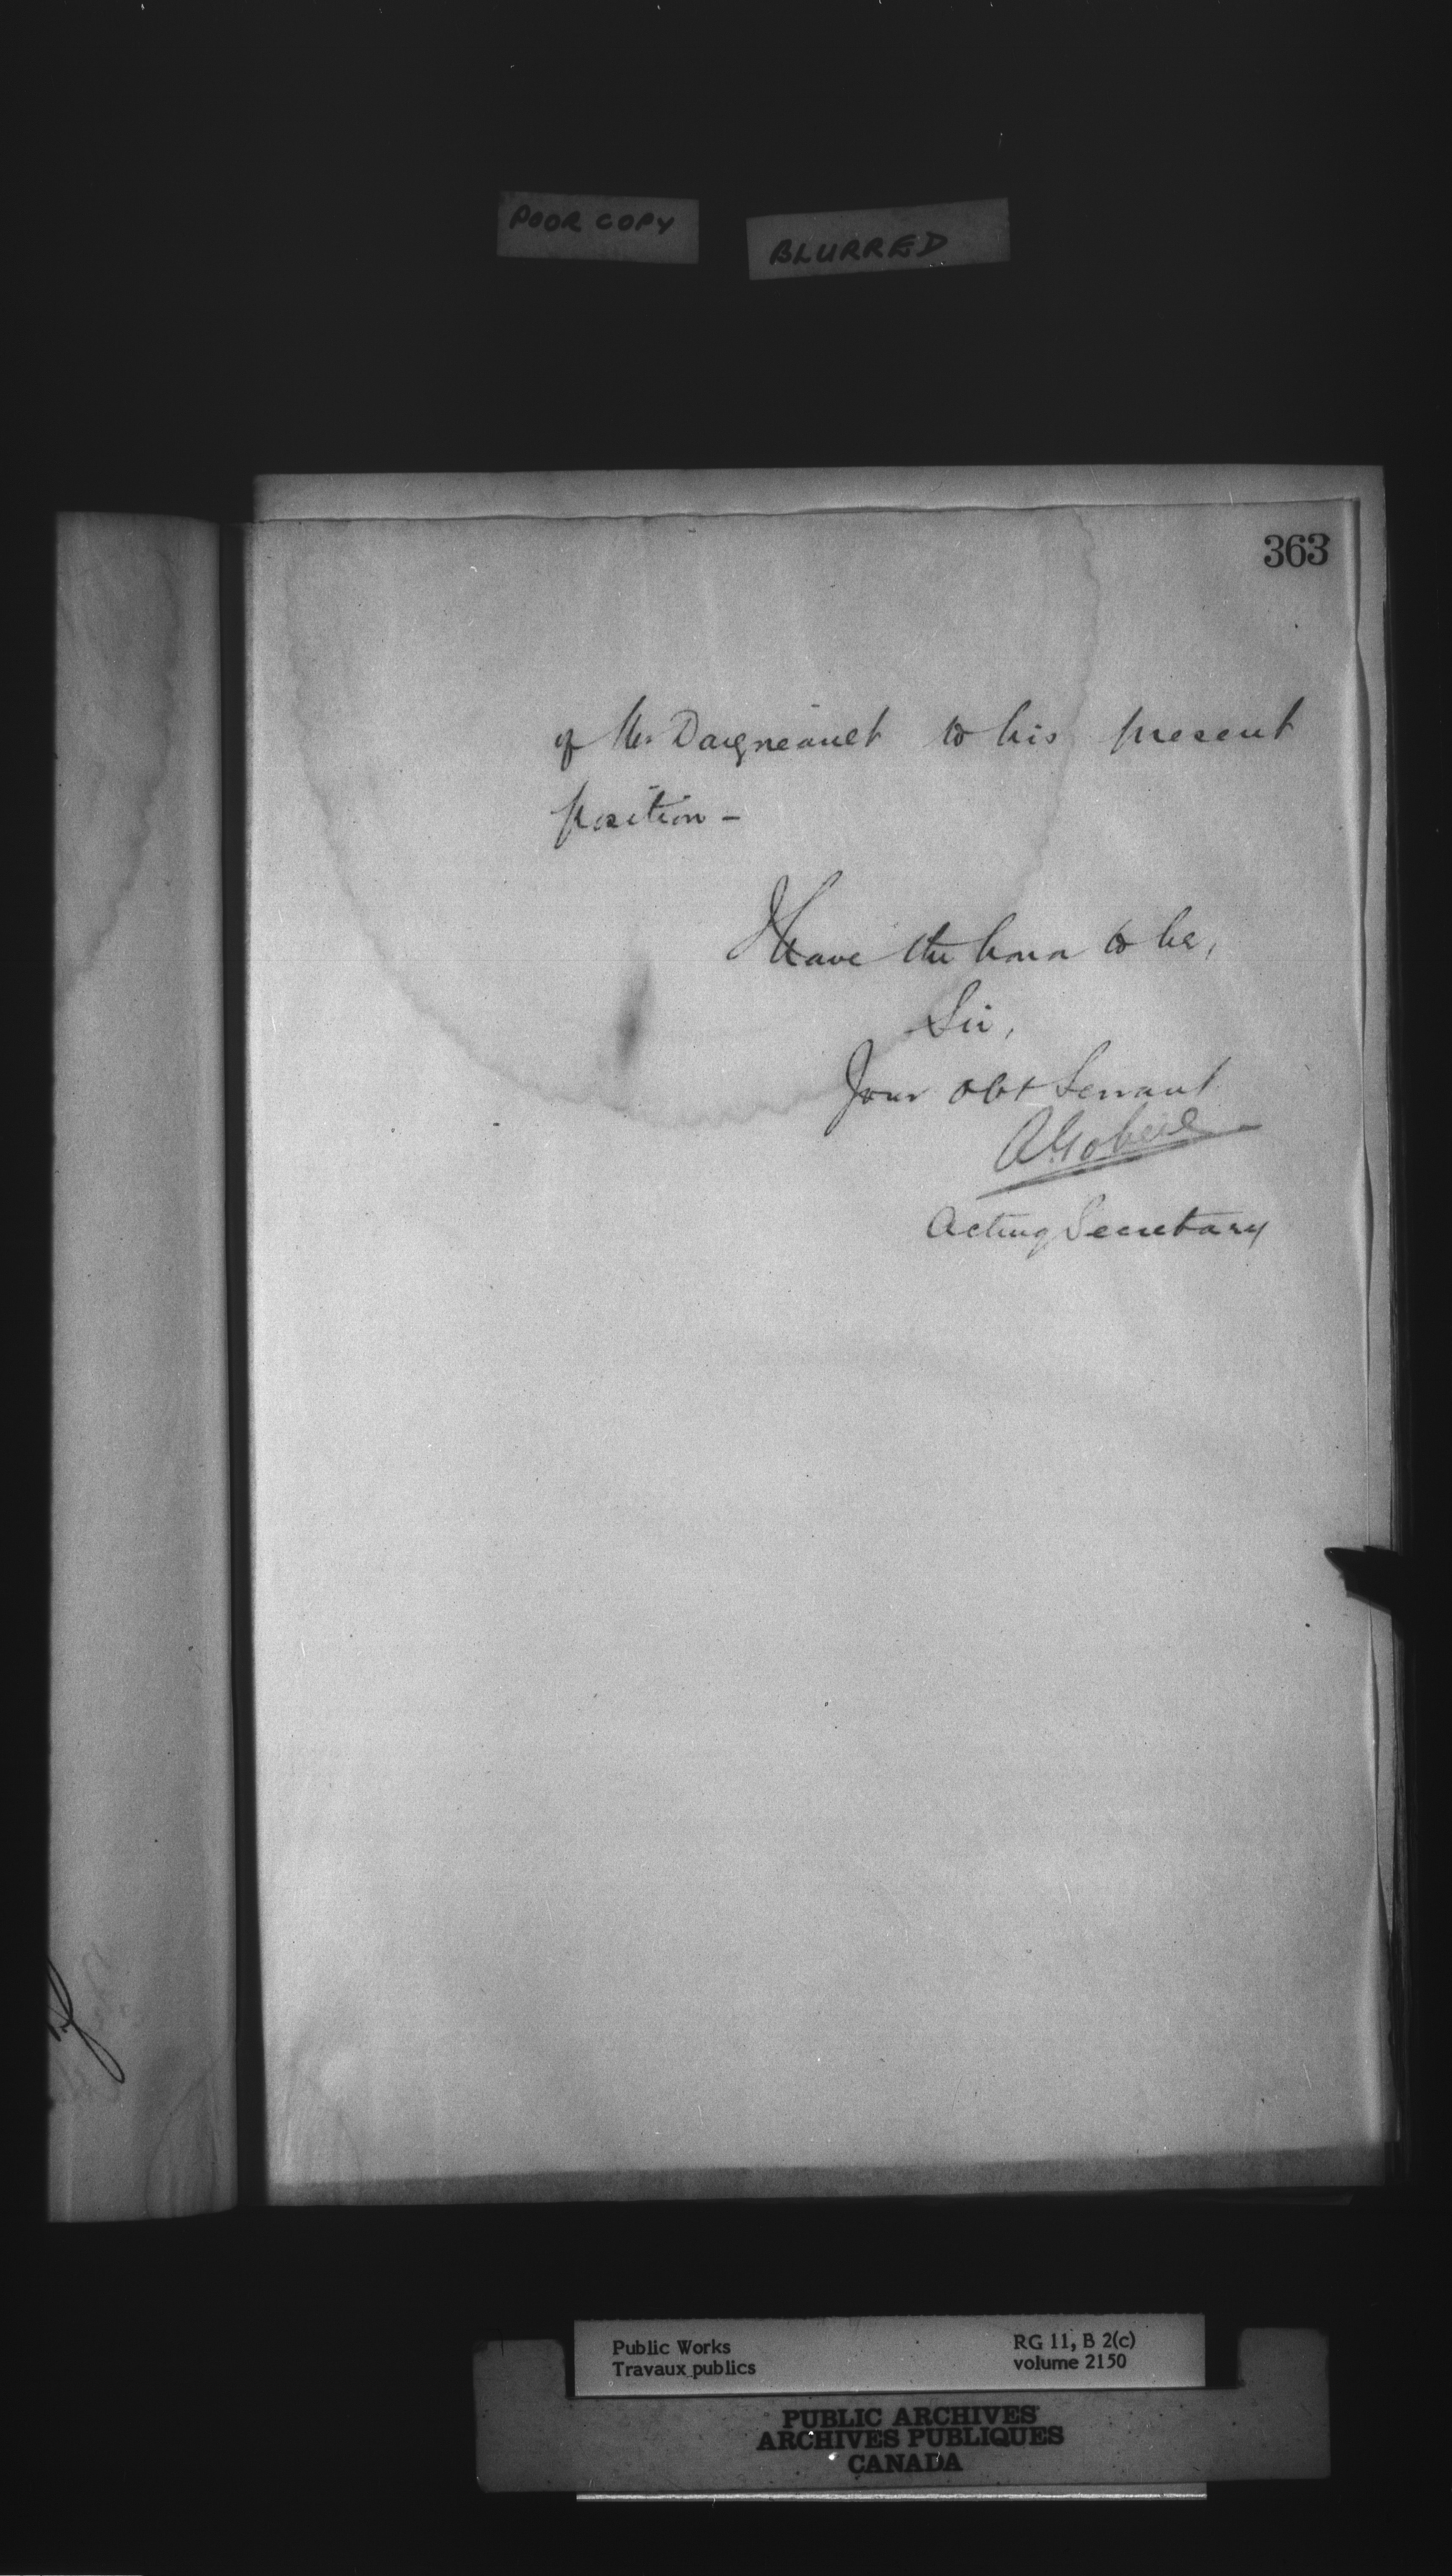 POOR COPY
BLURRED
363
of Mr Daigneault to his present
position -
I have the honor to be,
Sir,
Your obt Servant
A Gobeil
Acting Secretary
Public Works
Travaux publics
RG 11, B 2(c)
volume 2150
PUBLIC ARCHIVES
ARCHIVES PUBLIQUES
CANADA